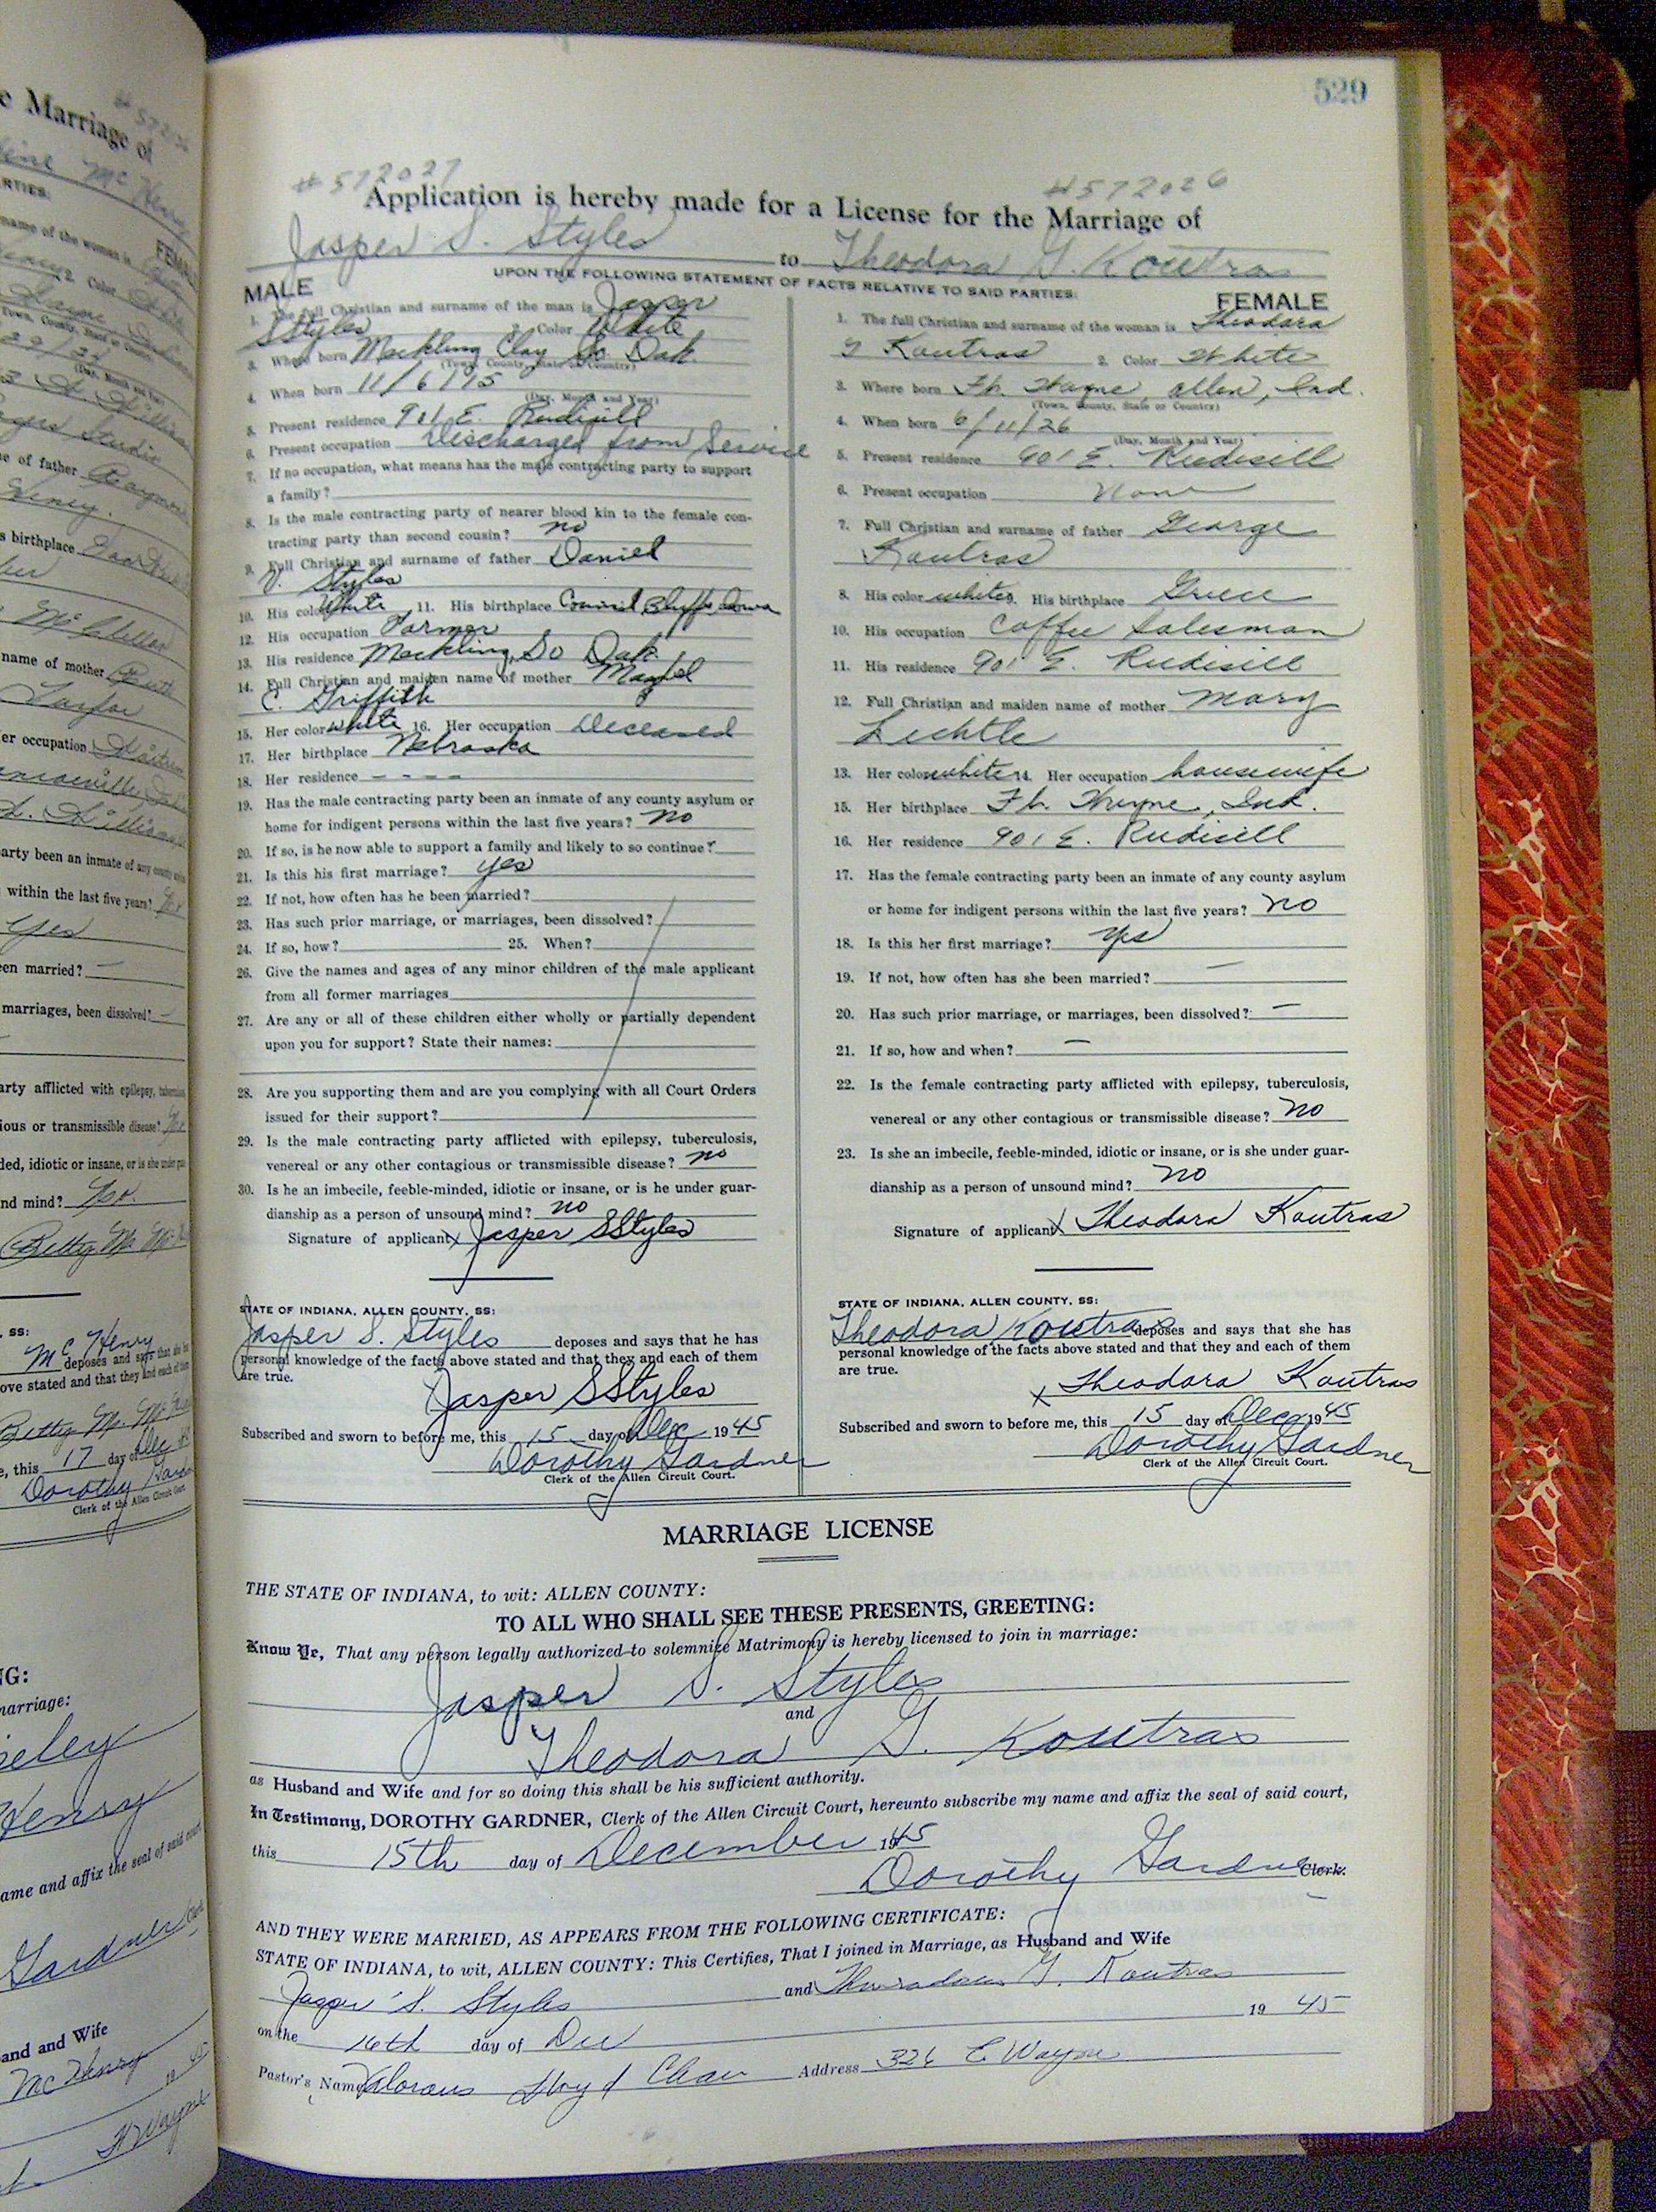 529
#572027
#572026
Application is hereby made for a License for the Marriage of
Jasper S. Styles to Theodora G. Koutras
UPON THE FOLLOWING STATEMENT OF FACTS RELATIVE TO SAID PARTIES:
MALE
1. The full Christian and surname of the man is Jasper
S Styles 2. Color White
3. Where born Meckling Clay So Dak.
(Town, County, State or Country)
4. When born 11/6/15
(Day, Month and Year)
5. Present residence 901 E. Rudisill
6. Present occupation Discharged from Service
7. If no occupation, what means has the male contracting party to support
a family?
8. Is the male contracting party of nearer blood kin to the female con-
tracting party than second cousin? no
9. Full Christian and surname of father Daniel
V. Styles
10. His color White 11. His birthplace Council Bluffs, Iowa
12. His occupation Farmer
13. His residence Meckling, So Dak.
14. Full Christian and maiden name of mother
C. Griffith
15. Her color white 16. Her occupation Deceased
17. Her birthplace Nebraska
18. Her residence - - - -
19. Has the male contracting party been an inmate of any county asylum or
home for indigent persons within the last five years? no
20. If so, is he now able to support a family and likely to so continue?
21. Is this his first marriage? yes
22. If not, how often has he been married?
23. Has such prior marriage, or marriages, been dissolved?
24. If so, how? 25. When?
26. Give the names and ages of any minor children of the male applicant
from all former marriages
27. Are any or all of these children either wholly or partially dependent
upon you for support? State their names:
28. Are you supporting them and are you complying with all Court Orders
issued for their support?
29. Is the male contracting party afflicted with epilepsy, tuberculosis,
venereal or any other contagious or transmissible disease? no
30. Is he an imbecile, feeble-minded, idiotic or insane, or is he under guar-
dianship as a person of unsound mind? no
Signature of applicant x Jasper S Styles
STATE OF INDIANA, ALLEN COUNTY, SS:
Jasper S. Styles deposes and says that he has
personal knowledge of the facts above stated and that they and each of them
are true.
Jasper S Styles
Subscribed and sworn to before me, this 15 day of Dec 1945
Dorothy Gardner
Clerk of the Allen Circuit Court.
FEMALE
1. The full Christian and surname of the woman is Theodora
G Koutras 2. Color White
3. Where born Ft. Wayne, Allen, Ind.
(Town, County, State or Country)
4. When born 6/11/26
(Day, Month and Year)
5. Present residence 901 E. Rudisill
6. Present occupation None
7. Full Christian and surname of father George
Koutras
8. His color white 9. His birthplace Greece
10. His occupation Coffee Salesman
11. His residence 901 E. Rudisill
12. Full Christian and maiden name of mother Mary
Lichtle
13. Her color white 14. Her occupation housewife
15. Her birthplace Ft. Wayne, Ind.
16. Her residence 901 E. Rudisill
17. Has the female contracting party been an inmate of any county asylum
or home for indigent persons within the last five years? no
18. Is this her first marriage? yes
19. If not, how often has she been married? —
20. Has such prior marriage, or marriages, been dissolved? —
21. If so, how and when? —
22. Is the female contracting party afflicted with epilepsy, tuberculosis,
venereal or any other contagious or transmissible disease? no
23. Is she an imbecile, feeble-minded, idiotic or insane, or is she under guar-
dianship as a person of unsound mind? no
Signature of applicant x Theodora Koutras
STATE OF INDIANA, ALLEN COUNTY, SS:
Theodora Koutras deposes and says that she has
personal knowledge of the facts above stated and that they and each of them
are true.
x Theodora Koutras
Subscribed and sworn to before me, this 15 day of Dec 1945
Dorothy Gardner
Clerk of the Allen Circuit Court.
MARRIAGE LICENSE
THE STATE OF INDIANA, to wit: ALLEN COUNTY:
TO ALL WHO SHALL SEE THESE PRESENTS, GREETING:
Know Ye, That any person legally authorized to solemnize Matrimony is hereby licensed to join in marriage:
Jasper S. Styles
and
Theodora G. Koutras
as Husband and Wife and for so doing this shall be his sufficient authority.
In Testimony, DOROTHY GARDNER, Clerk of the Allen Circuit Court, hereunto subscribe my name and affix the seal of said court,
this 15th day of December 1945
Dorothy Gardner Clerk.
AND THEY WERE MARRIED, AS APPEARS FROM THE FOLLOWING CERTIFICATE:
STATE OF INDIANA, to wit, ALLEN COUNTY: This Certifies, That I joined in Marriage, as Husband and Wife
Jasper S. Styles and G. Koutras
on the 16th day of Dec 1945
Pastor's Name Floyd Address 326 E Wayne